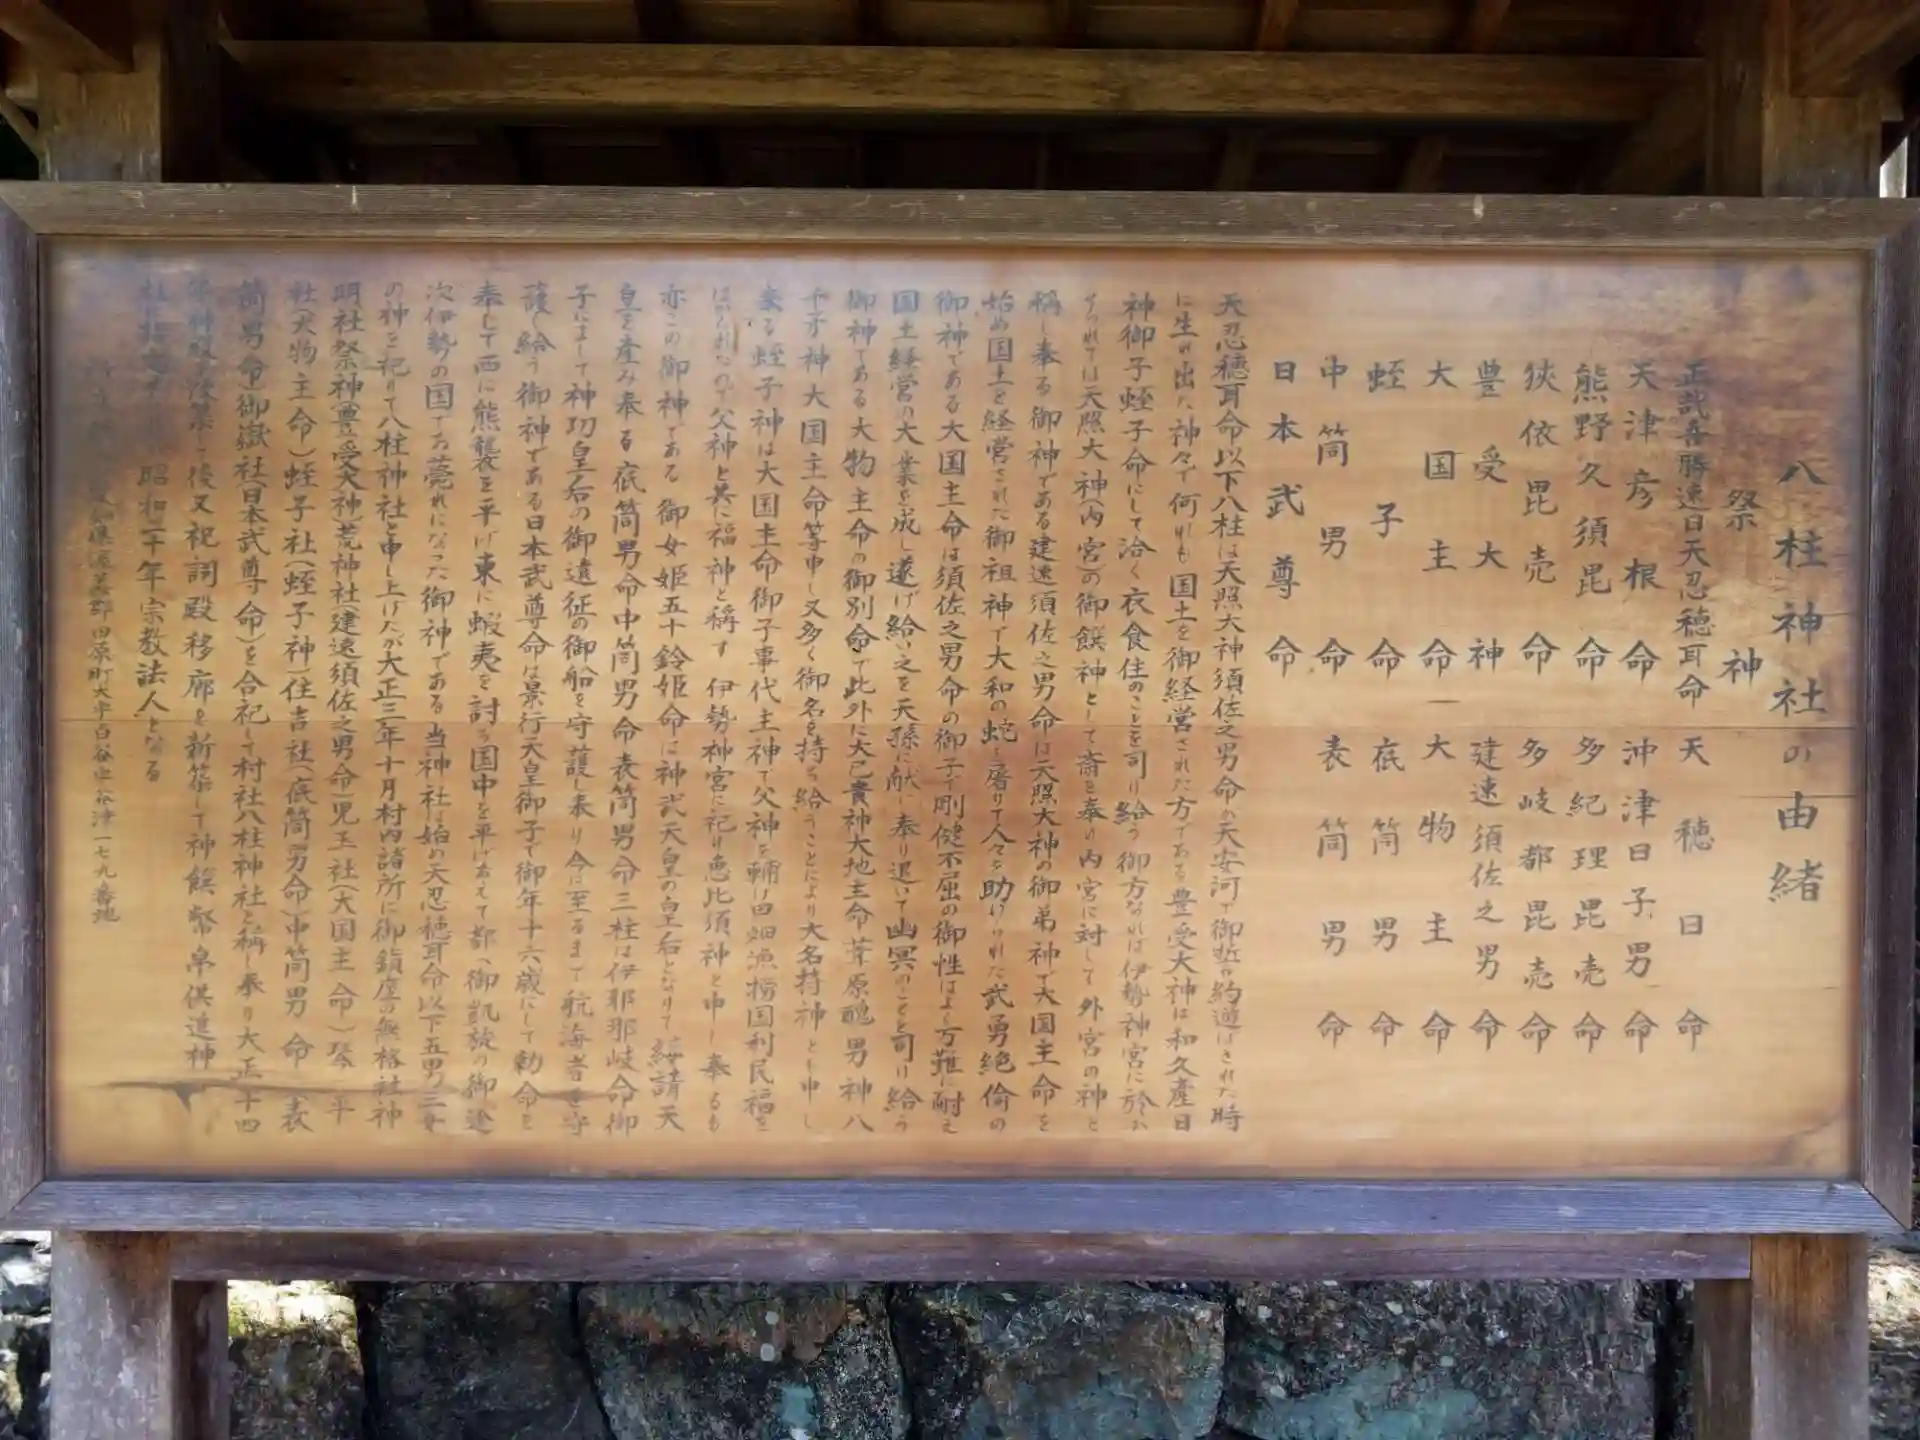 八柱神社の由緒
祭神
正哉吾勝速日天忍穂耳命 天穂日命
天津彦根命 沖津日子男命
熊野久須毘命 多紀理毘売命
狭依毘売命 多岐都毘売命
豊受大神 建速須佐之男命
大国主命 大物主命
蛭子命 底筒男命
中筒男命 表筒男命
日本武尊命
天忍穂耳命以下八柱は天照大神須佐之男命が天安河で御誓約遊ばされた時
に生れ出た神々で何れも国土を御経営された方である豊受大神は和久産日
神御子蛭子命にして洽く衣食住のことを司り給う御方なれば伊勢神宮に於か
せられては天照大神(内宮)の御饌神として斎き奉り内宮に対して外宮の神と
称し奉る御神である建速須佐之男命は天照大神の御弟神で大国主命を
始め国土を経営された御祖神で大和の蛇を屠りて人々を助けられた武勇絶倫の
御神である大国主命は須佐之男命の御子で剛健不屈の御性はよく万難に耐え
国土経営の大業を成し遂げ給い之を天孫に献じ奉り退いて幽冥のことを司り給う
御神である大物主命の御別命で此外に大己貴神大地主命葦原醜男神八
千矛神大国主命等申し又多く御名を持ち給うことにより大名持神とも申し
奉る蛭子神は大国主命御子事代主神で父神を輔け田畑漁撈国利民福を
はかられたので父神と共に福神と稱す 伊勢神宮に祀り恵比須神と申し奉るも
亦この御神である 御女姫五十鈴姫命は神武天皇の皇后となりて綏請天
皇を産み奉る 底筒男命中筒男命表筒男命三柱は伊耶那岐命御
子にまして神功皇后の御遠征の御船を守護し奉り今に至るまで航海者を守
護し給う御神である日本武尊命は景行天皇御子で御年十六歳にして勅命を
奉して西に熊襲を平げ東に蝦夷を討ち国中を平げおえて都へ御凱旋の御途
次伊勢の国でお薨れになった御神である 当神社は始め天忍穂耳命以下五男三女
の神を祀りて八柱神社と申し上げたが大正三年十月村内諸所に御鎮座の無格社神
明社祭神(豊受大神)荒神社(建速須佐之男命)児玉社(大国主命)琴平
社(大物主命)蛭子社(蛭子神)住吉社(底筒男命)中筒男命 表
筒男命)御嶽社(日本武尊命)を合祀して村社八柱神社と稱し奉り大正十四
後又祀詞殿移廊を新築して神饌幣帛供進神
昭和二十年宗教法人となる
渥美郡田原町大字白谷字谷津一七九番地